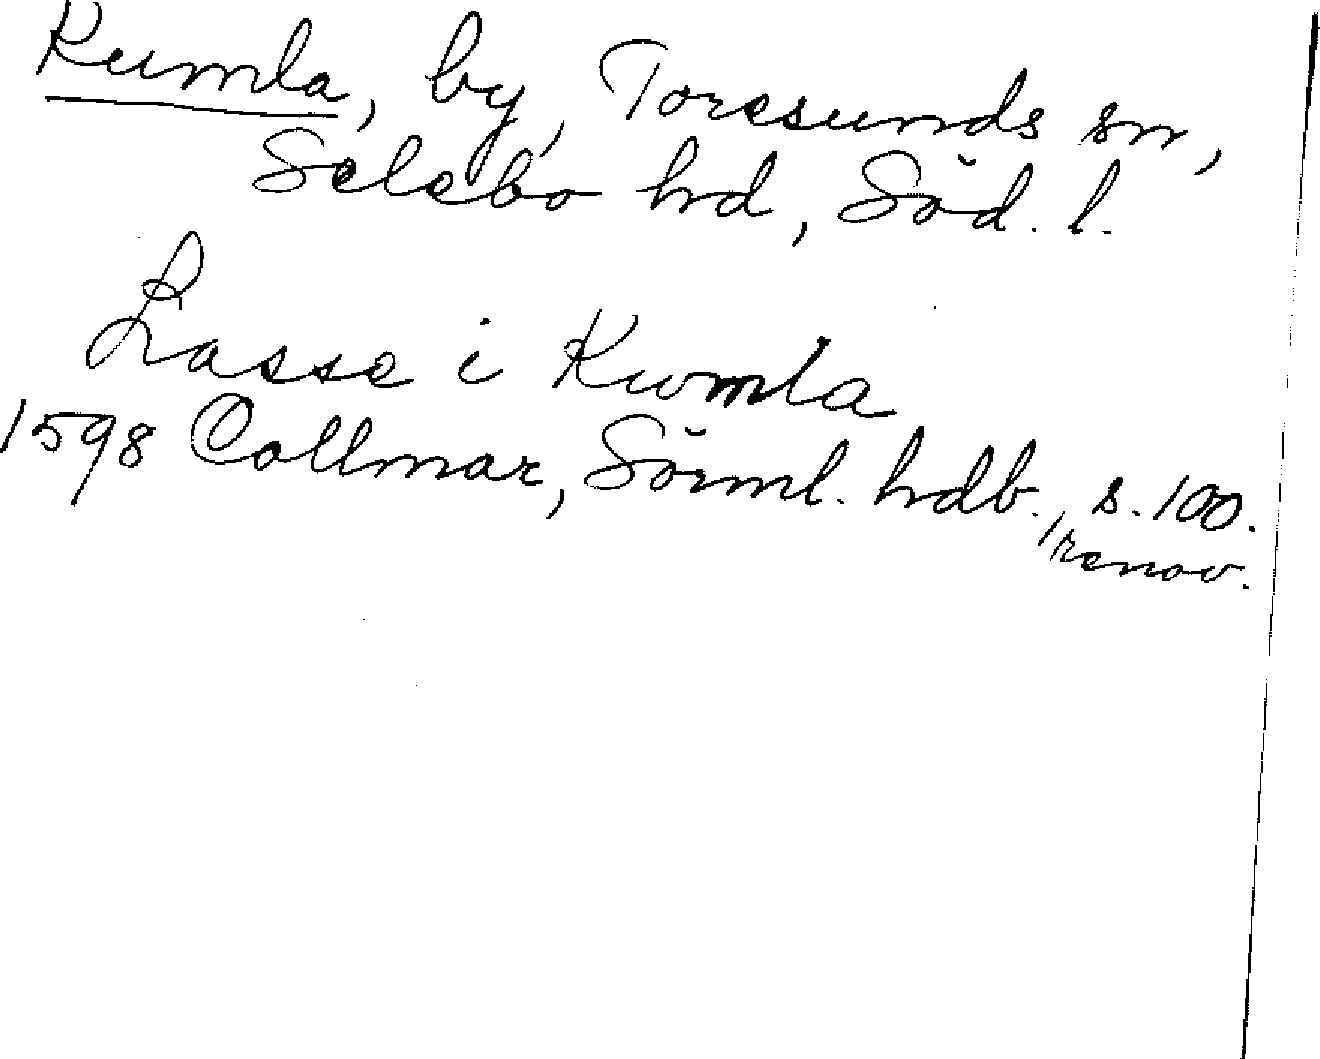 Kumla, by, Toresunds sn,
Selebo hd, Söd. l.
Lasse i Kwmla
1598 Collmar, Sörml. hdb., s. 100.
renov.